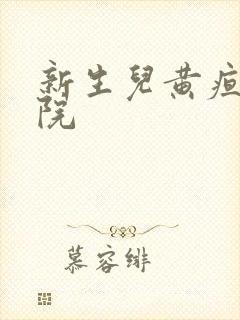 新生兒黄疸
院
慕容绯